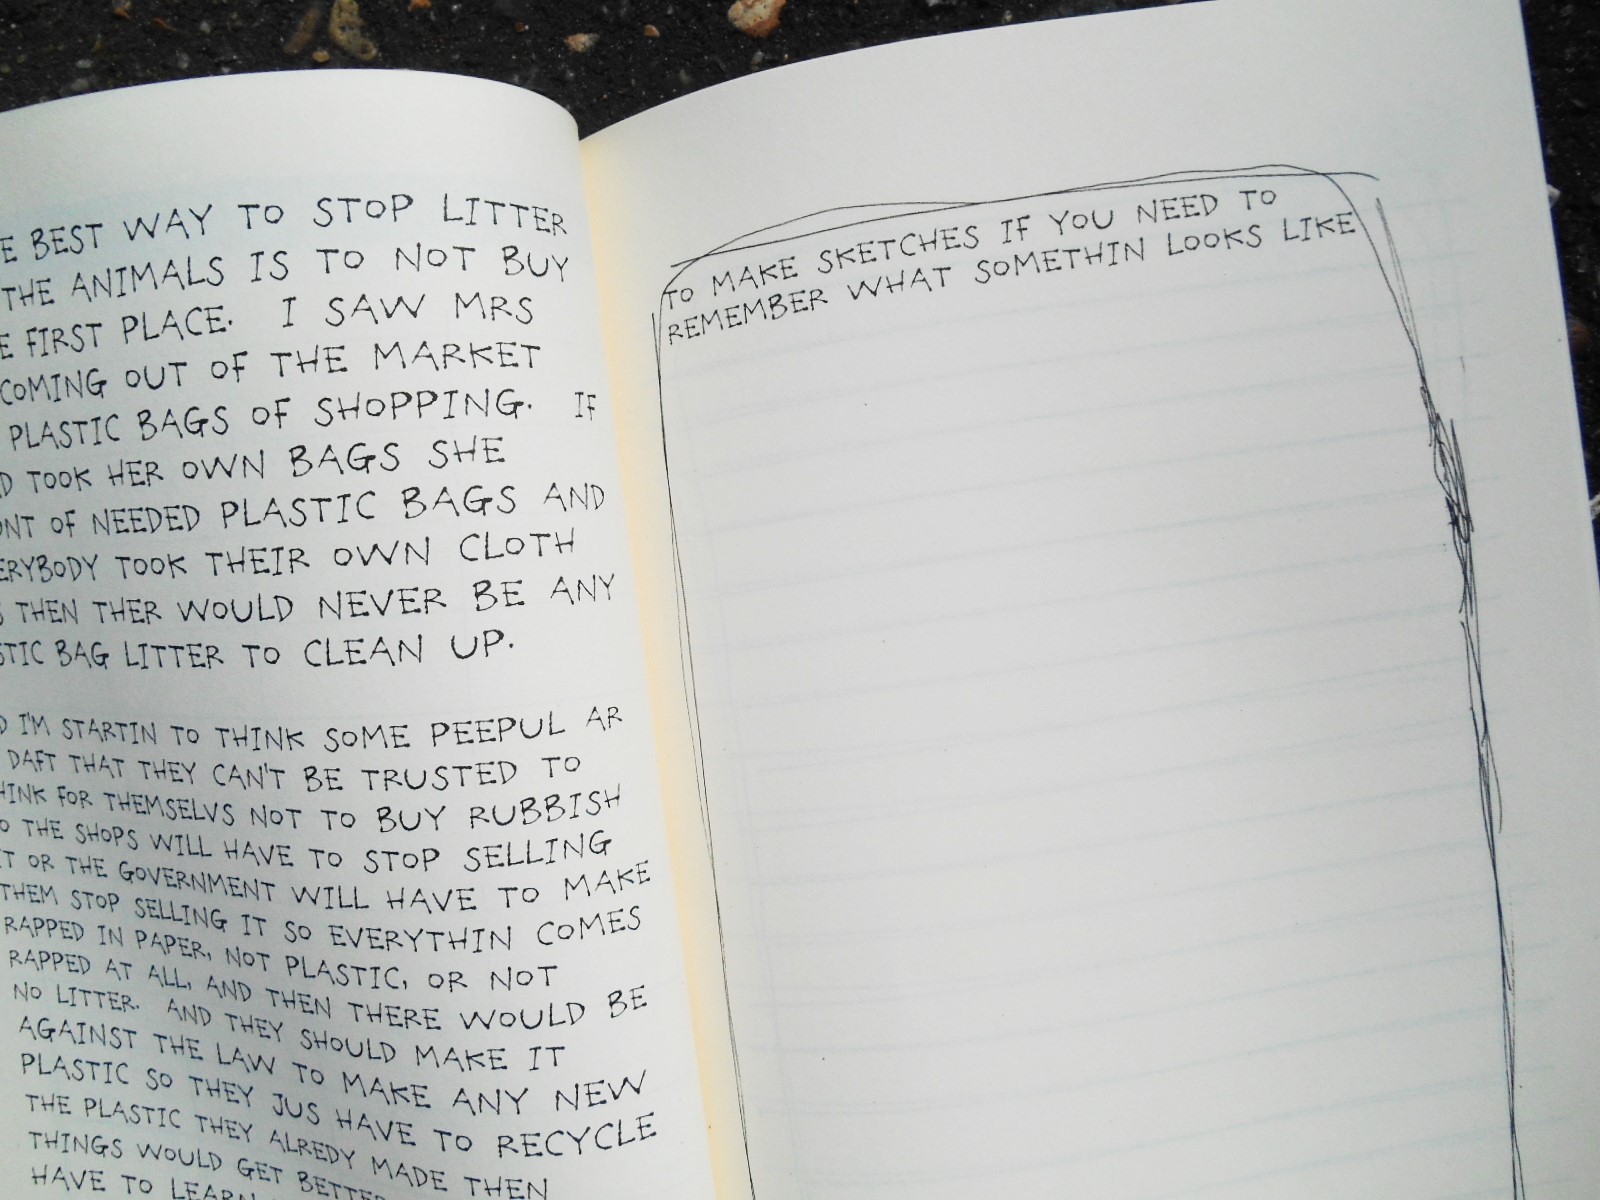 BEST WAY TO STOP LITTER
THE ANIMALS IS TO NOT BUY
FIRST PLACE. I SAW MRS
COMING OUT OF THE MARKET
PLASTIC BAGS OF SHOPPING. IF
TOOK HER OWN BAGS SHE
OF NEEDED PLASTIC BAGS AND
TOOK THEIR OWN CLOTH
THEN THER WOULD NEVER BE ANY
BAG LITTER TO CLEAN UP.
I'M STARTIN TO THINK SOME PEEPUL AR
DAFT THAT THEY CAN'T BE TRUSTED TO
FOR THEMSELVS NOT TO BUY RUBBISH
THE SHOPS WILL HAVE TO STOP SELLING
OR THE GOVERNMENT WILL HAVE TO MAKE
THEM STOP SELLING IT SO EVERYTHIN COMES
RAPPED IN PAPER, NOT PLASTIC, OR NOT
RAPPED AT ALL, AND THEN THERE WOULD BE
NO LITTER. AND THEY SHOULD MAKE IT
AGAINST THE LAW TO MAKE ANY NEW
PLASTIC SO THEY JUS HAVE TO RECYCLE
THE PLASTIC THEY ALREDY MADE THEN
THINGS WOULD GET BETTER
HAVE TO LEARN
TO MAKE SKETCHES IF YOU NEED TO
REMEMBER WHAT SOMETHIN LOOKS LIKE